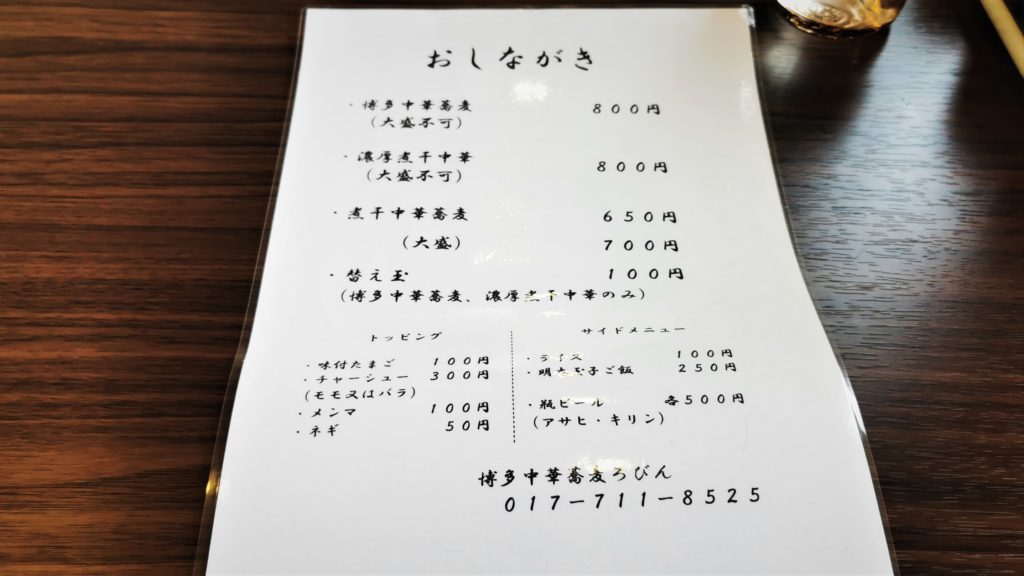 おしながき
・博多中華蕎麦 800円
(大盛不可)
・濃厚煮干中華 800円
(大盛不可)
・煮干中華蕎麦 650円
(大盛) 700円
・替え玉 100円
(博多中華蕎麦、濃厚煮干中華のみ)
トッピング
・味付たまご 100円
・チャーシュー 300円
(モモ又はバラ)
・メンマ 100円
・ネギ 50円
サイドメニュー
・ライス 100円
・明太玉子ご飯 250円
・瓶ビール 各500円
(アサヒ・キリン)
博多中華蕎麦ろびん
017-711-8525